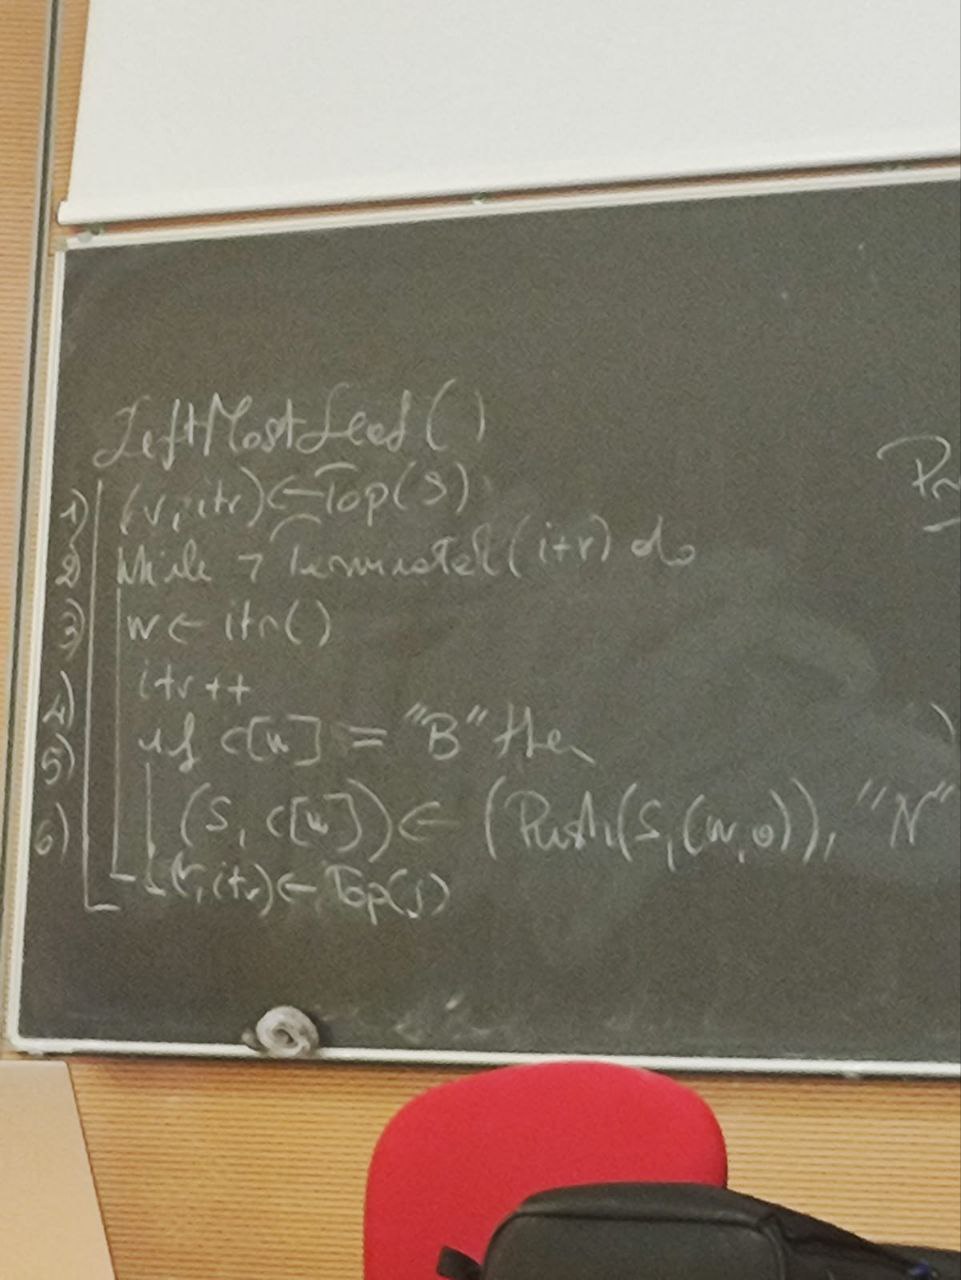 LeftMostLeaf()
1) (v, itr) ← Top(S)
2) While ¬ Terminated(itr) do
3) w ← itr()
itr++
4) if c[w] = "B" then
5) (S, c[w]) ← (Push(S,(w,0)), "N"
6) (v, itr) ← Top(S)